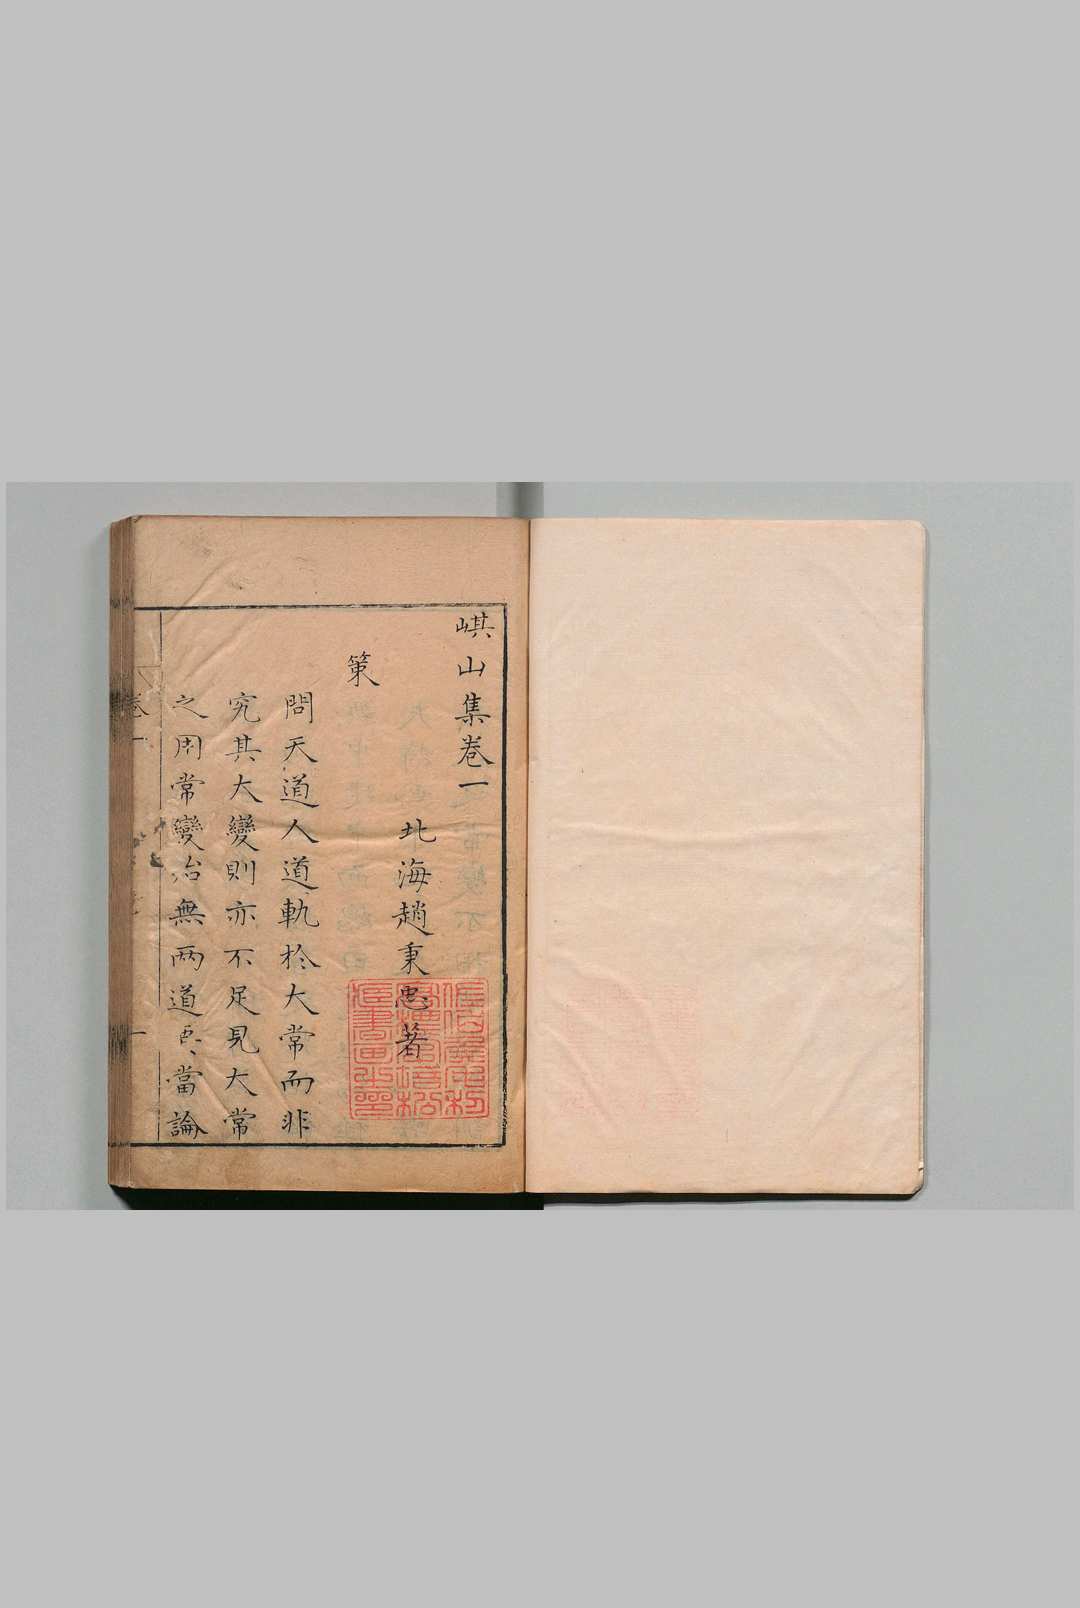 㟚山集卷一
北海趙秉忠著
策
問天道人道軌扵大常而非
究其大變則亦不足見大常
之用常變治無两道臣當論
卷一
一